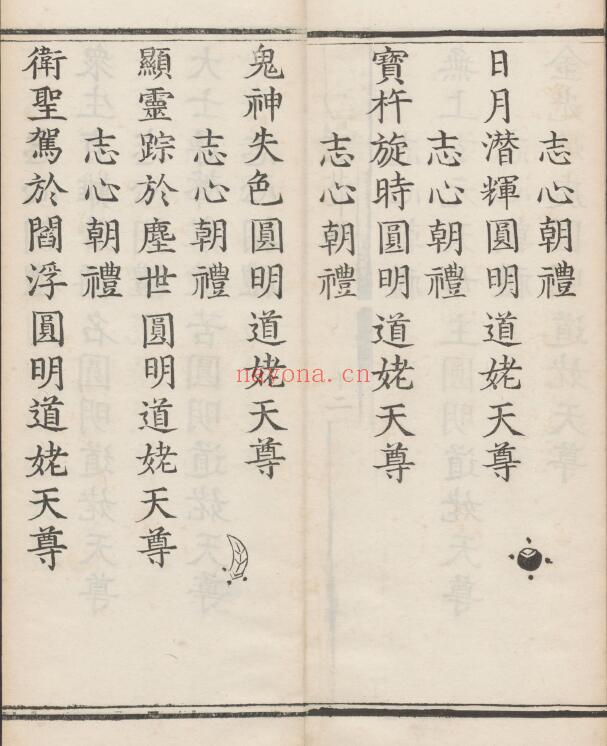 志心朝禮
日月潛輝圓明道姥天尊
志心朝禮
寶杵旋時圓明道姥天尊
志心朝禮
鬼神失色圓明道姥天尊
志心朝禮
顯靈踪於塵世圓明道姥天尊
志心朝禮
衛聖駕於閻浮圓明道姥天尊
nayona.cn